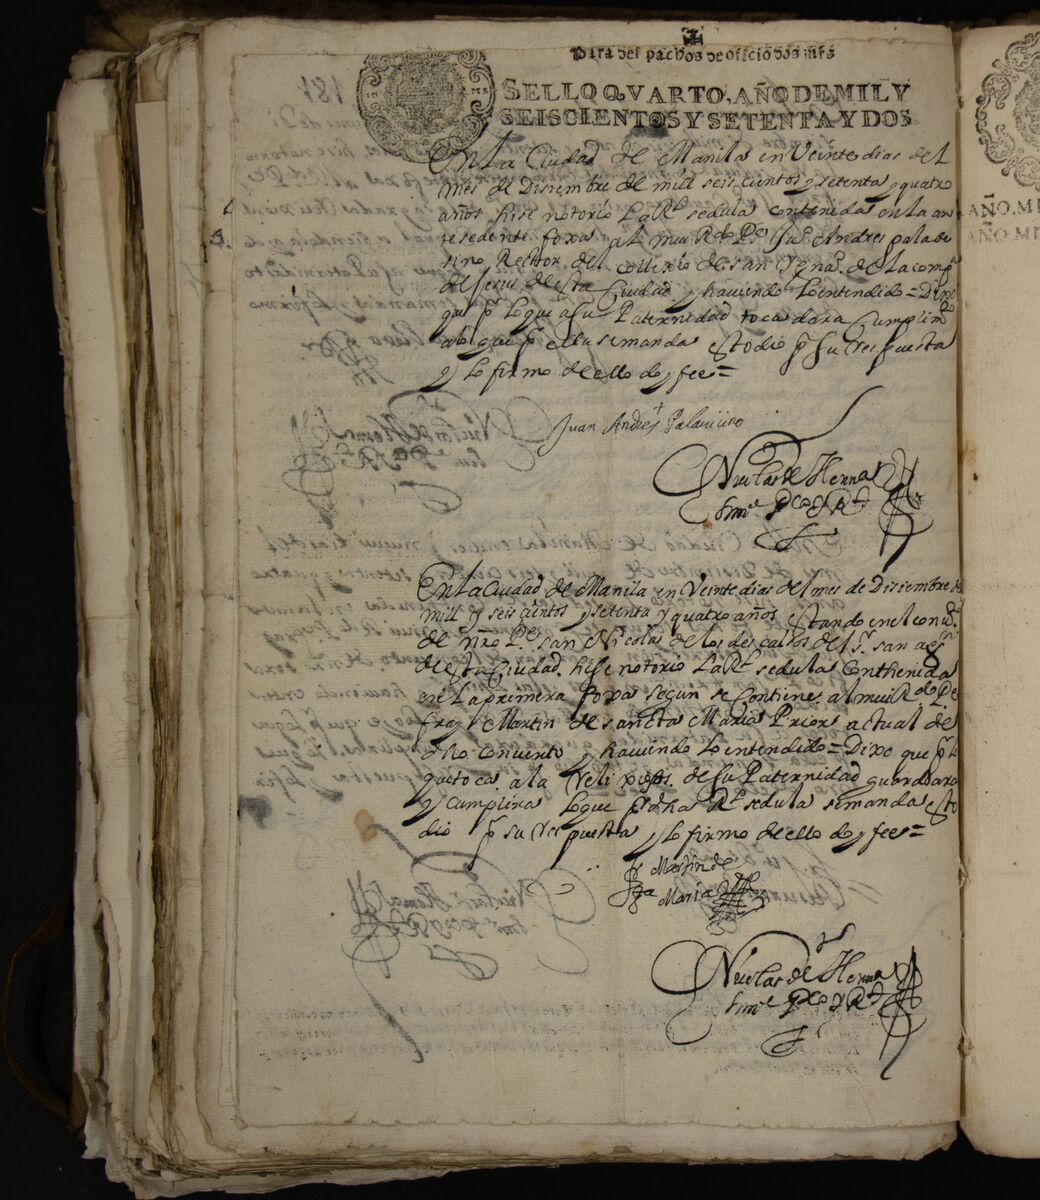 Para despachos de oficio dos mrs
SELLO QVARTO, AÑO DE MIL Y
SEISCIENTOS Y SETENTA Y DOS
En La Ciudad de Manila en Veinte dias del
mes de Disiembre de mill seis cientos y setenta y quatro
años hise notorio La Rl sedula contenida en La an
tesedente foxa al mui Rdo Pe Jun Andres palabe
sino Rector del collexio de san Ygnao de La compa
de Jesus de esta Ciudad y hauiendo Lo entendido = Dixo
que pr Lo que a su Paternidad toca dara Cumplimto
a lo que pr ella se manda esto dio pr su respuesta
y Lo firmo de ello doy fee =
Juan Andres Palauicino
Nicolas de Herrera
Srno Pco y Rl
En La Ciudad de Manila en Veinte dias del mes de Disiembre de
mill y seis cientos y setenta y quatro años estando en el conto
de nro Pe san Nicolas de los descalsos de sr san agn
de esta Ciudad. hise notorio La Rl sedula Conthenida
en La primera foxa segun se Contiene al mui Rdo Pe
fray Martin de sancta Maria Prior actual de
dho conuento y hauiendo Lo entendido = Dixo que pr lo
que toca a la de su Paternidad guardara
y cumplira Lo que pr dha Rl sedula se manda esto
dio pr su respuesta y lo firmo de ello doy fee =
fr Martin de
Sta Maria
Nicolas de Herrera
Srno Pco y Rl
AÑO. MI
AÑO MI